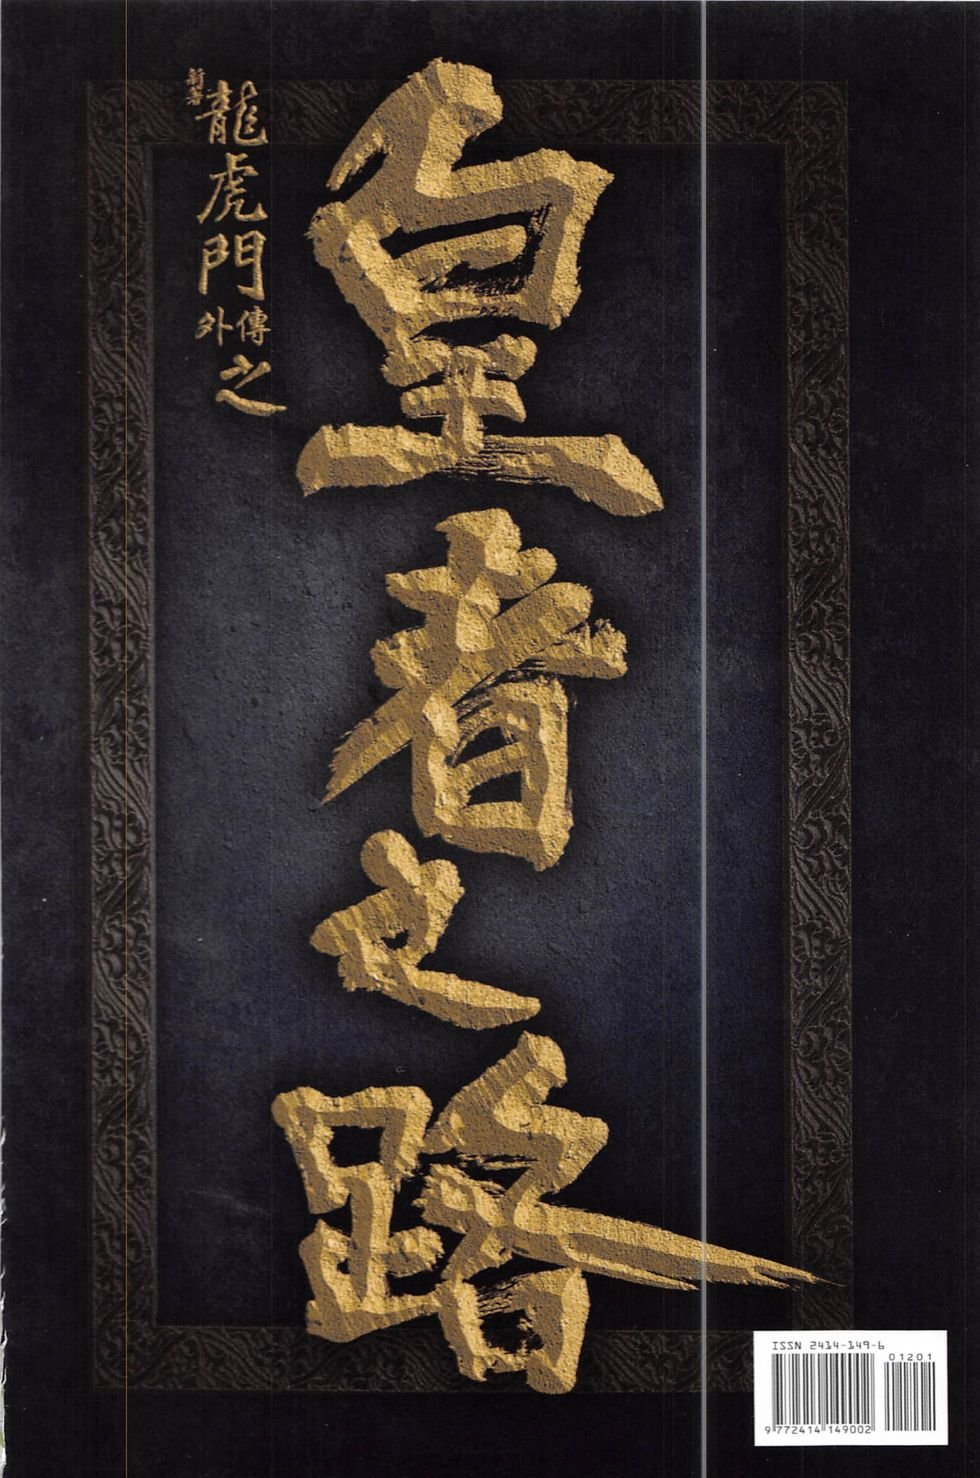 新著
龍虎門
外傳
之
皇者之路
ISSN 2414-149-6
01201
9 772414 149002